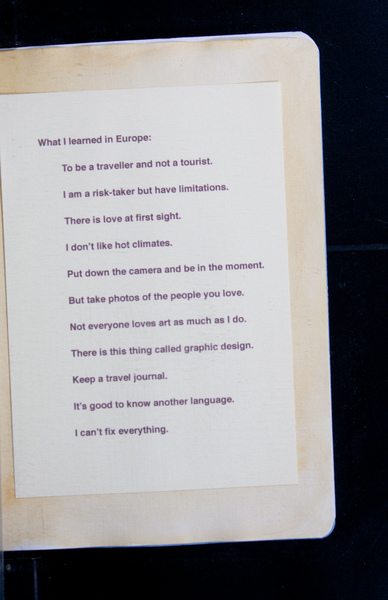 What I learned in Europe:
To be a traveller and not a tourist.
I am a risk-taker but have limitations.
There is love at first sight.
I don't like hot climates.
Put down the camera and be in the moment.
But take photos of the people you love.
Not everyone loves art as much as I do.
There is this thing called graphic design.
Keep a travel journal.
It's good to know another language.
I can't fix everything.